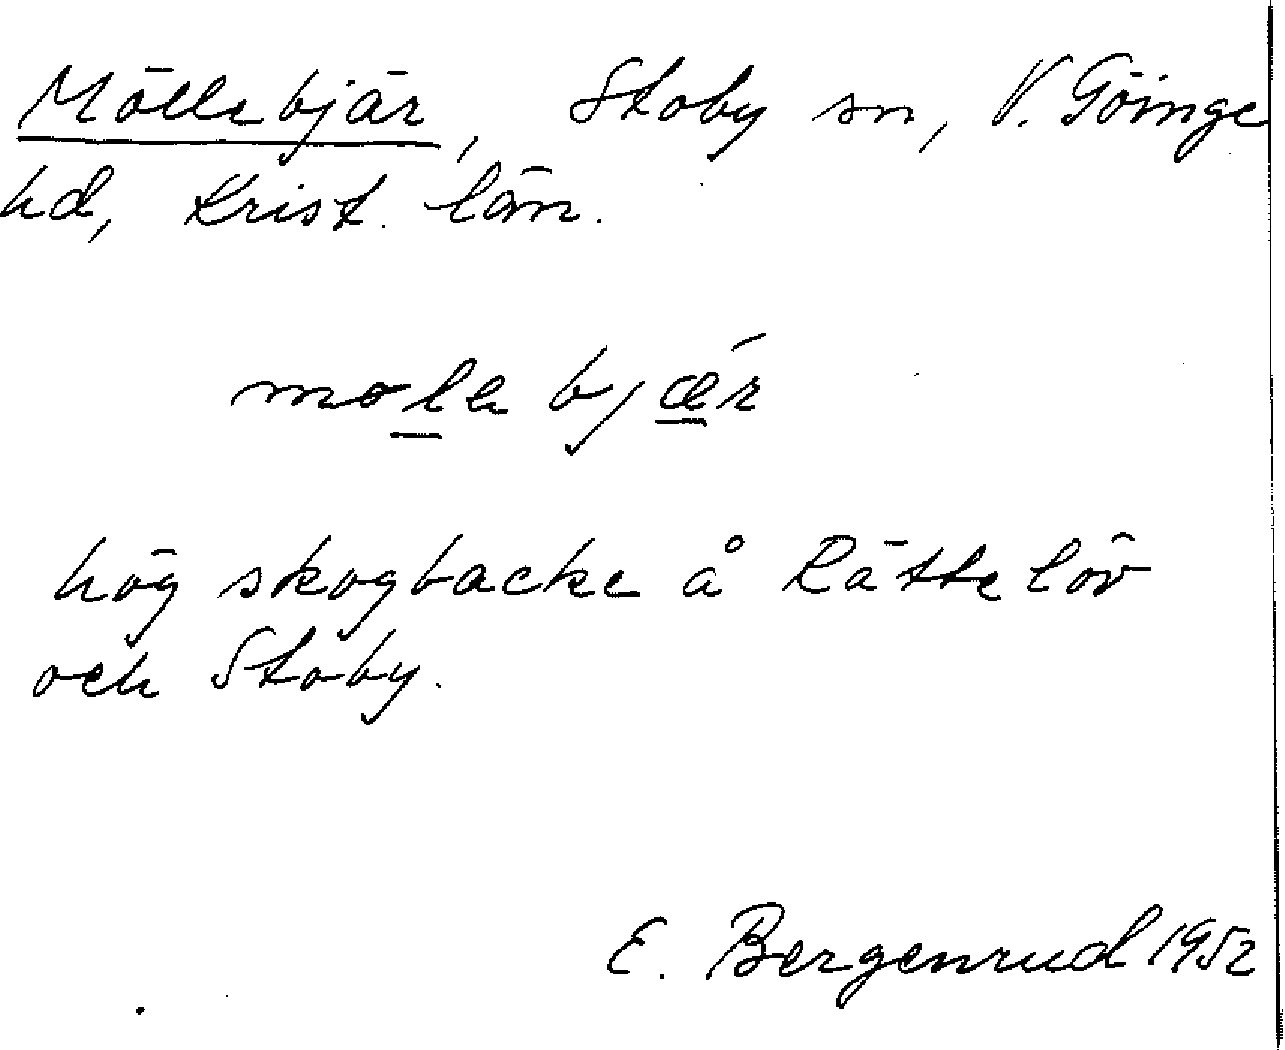 Möllebjär, Stoby sn, V. Göinge
hd, Krist. län.
mole bjǽr
hög skogbacke å Rättelöv
och Stoby.
E. Bergenrud 1952